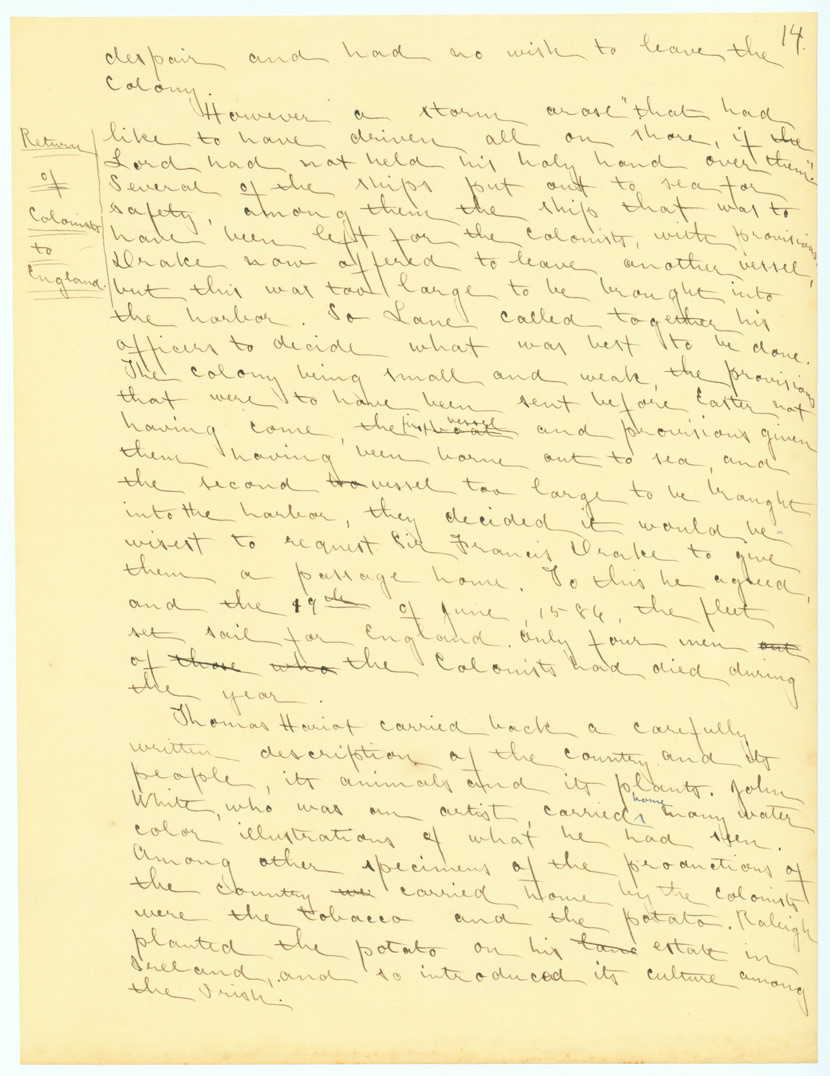 14.
despair and had no wish to leave the
Colony.
However a storm arose "that had
Return
like to have driven all on shore, if the
Lord had not held his holy hand over them".
of
Several of the ships put out to sea for
safety, among them the ship that was to
Colonists
have been left for the colonists, with provisions.
to
Drake now offered to leave another vessel,
England.
but this was too large to be brought into
the harbor. So Lane called together his
officers to decide what was best to be done.
The colony being small and weak, the provisions
that were to have been sent before Easter not
having come, the first boat vessel and provisions given
them having been borne out to sea, and
the second vessel too large to be brought
into the harbor, they decided it would be
wisest to request Sir Francis Drake to give
them a passage home. To this he agreed,
and the 19th of June, 1586, the fleet
set sail for England. Only four men out
of those who the Colonists had died during
the year.
Thomas Hariot carried back a carefully
written description of the country and its
people, its animals and its plants. John
White, who was an artist, carried home many water
color illustrations of what he had seen.
Among other specimens of the productions of
the country we carried home by the colonists
were the tobacco and the potato. Raleigh
planted the potato on his land estate in
Ireland, and so introduced its culture among
the Irish.